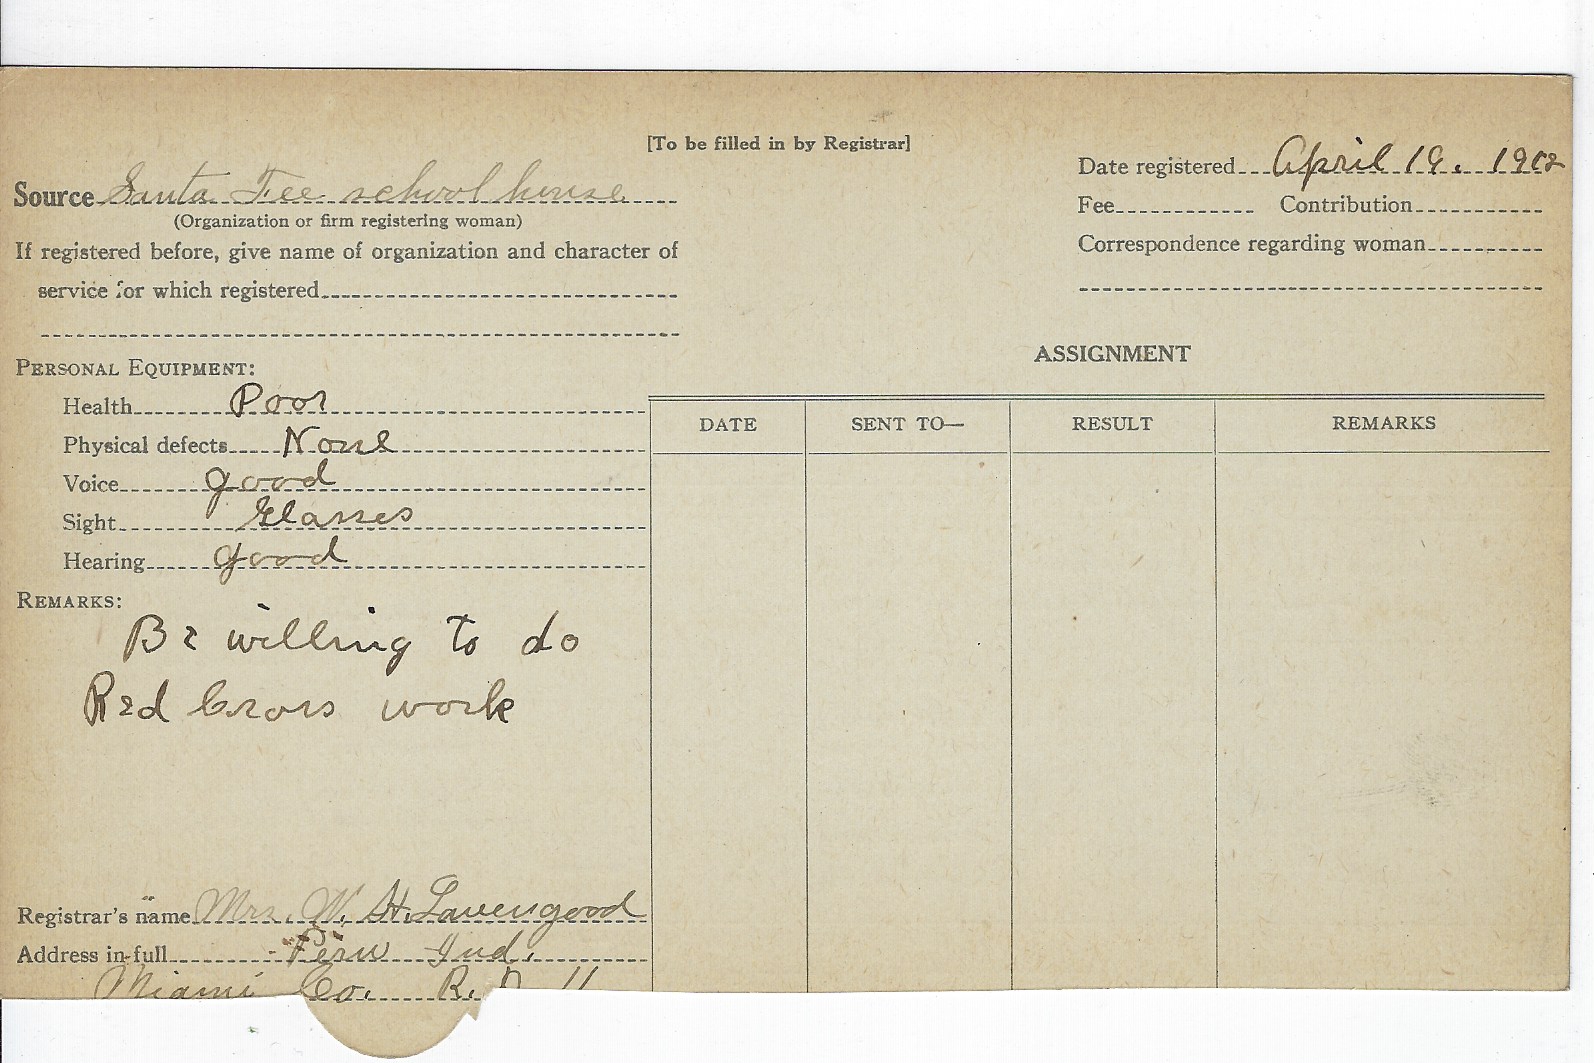 [To be filled in by Registrar]
Source Santa Fee school house
(Organization or firm registering woman)
If registered before, give name of organization and character of
service for which registered
Date registered April 19. 1918
Fee Contribution
Correspondence regarding woman
PERSONAL EQUIPMENT:
Health Poor
Physical defects None
Voice good
Sight Glasses
Hearing good
REMARKS:
Be willing to do
Red Cross work
Registrar's name Mrs. W. H. Lavengood
Address in full Peru Ind.
Miami Co. R. 11
ASSIGNMENT
DATE SENT TO— RESULT REMARKS